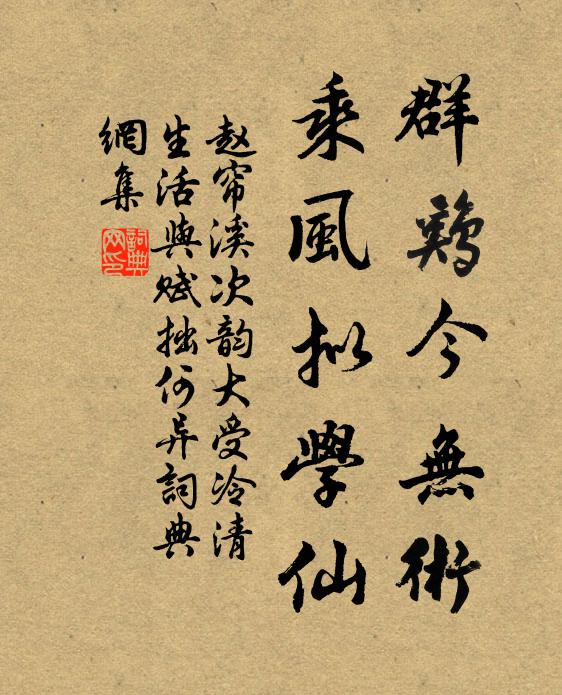 群鷄今無術
乘風拟學仙
赵帘溪次韵大受冷清
生活與赋拙何异詞典
網集
詞典网印